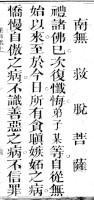 南無救脫菩薩
禮諸佛已次復懺悔弟子某等自從無
始以來至於今日所有貪瞋嫉妬之病
憍慢自傲之病不識善惡之病不信罪